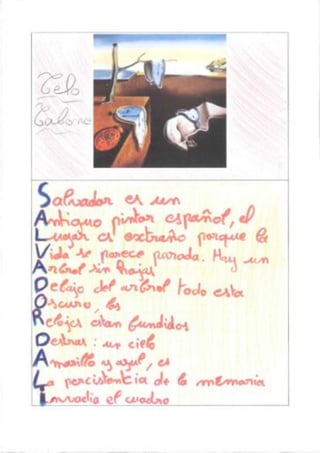 Telo
Salvador es un
Antiguo pintor español, el
Lugar es extraño porque la
Vida se parece parada. Hay un
Arbrol sin hojas
Debajo del arbrol todo esta
Oscuro, los
Relojes estan fundidos
Destras : un cielo
Amarillo y azul, es
La percistencia de la memoria
Invadia el cuadro